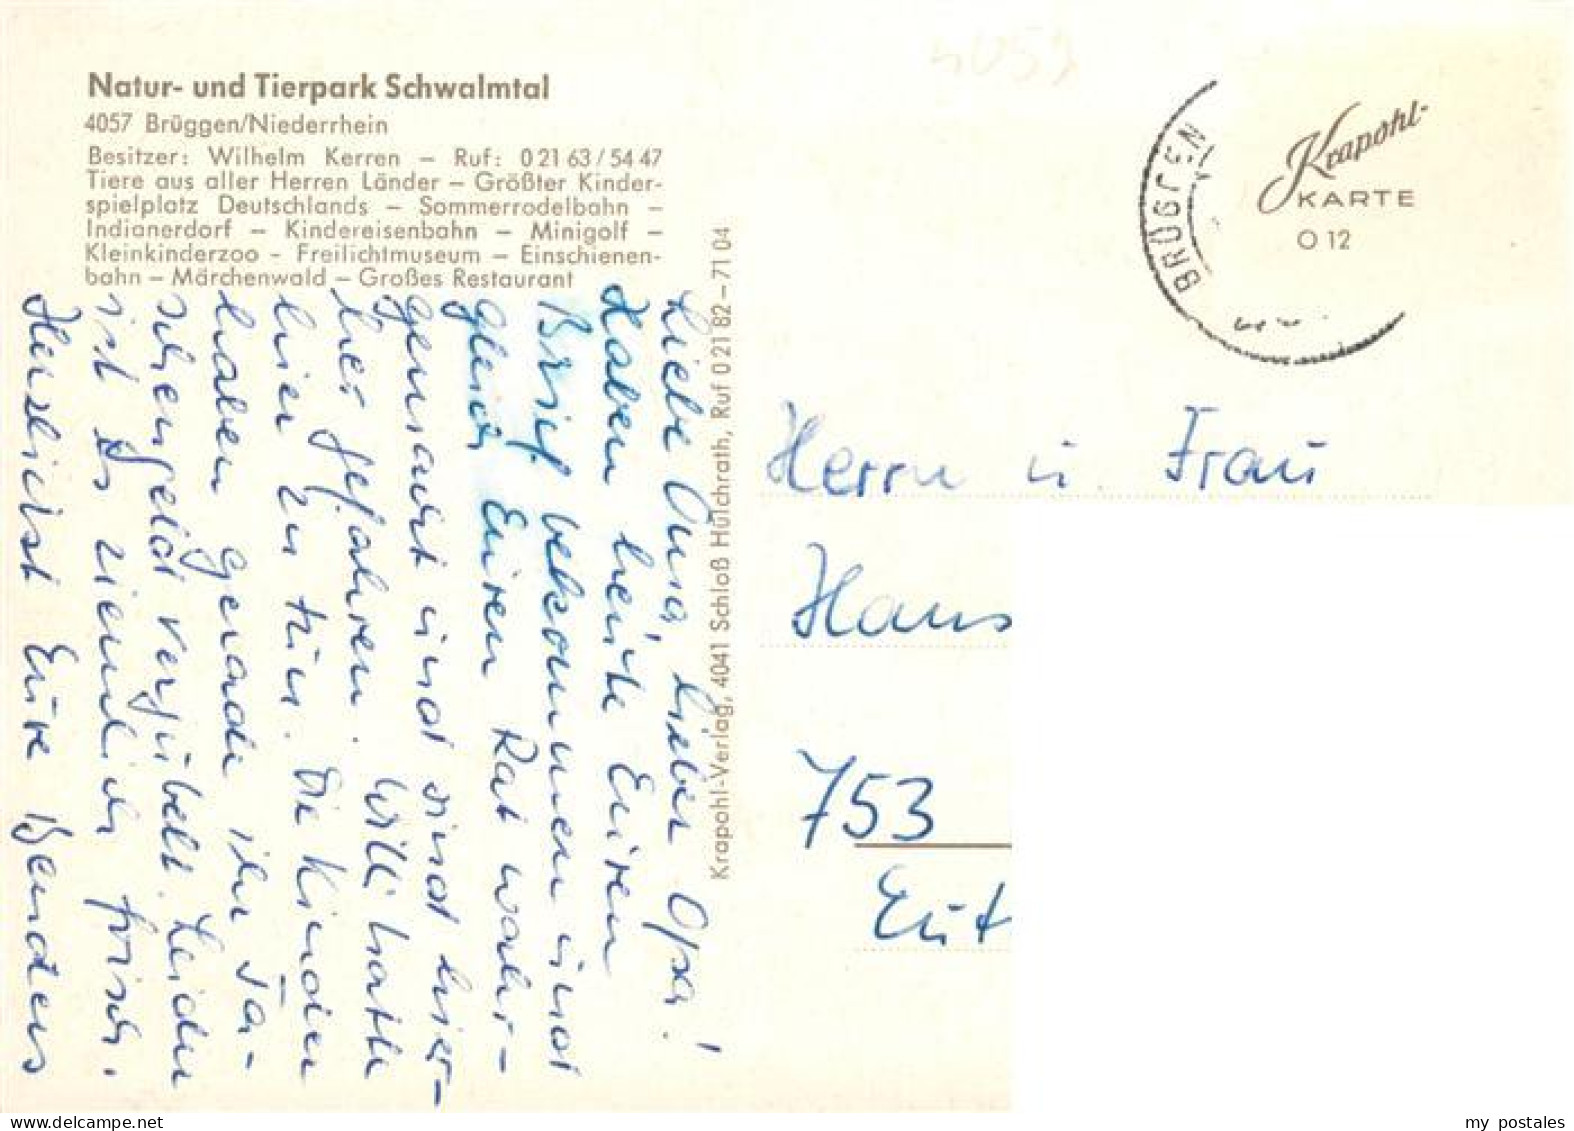 Natur- und Tierpark Schwalmtal
4057 Brüggen/Niederrhein
Besitzer: Wilhelm Kerren – Ruf: 0 21 63 / 54 47
Tiere aus aller Herren Länder – Größter Kinder-
spielplatz Deutschlands – Sommerrodelbahn –
Indianerdorf – Kindereisenbahn – Minigolf –
Kleinkinderzoo - Freilichtmuseum – Einschienen-
bahn – Märchenwald – Großes Restaurant
Liebe Oma, lieber Opa!
Haben heute Euren
Brief bekommen und
gleich Euren Rat wahr-
gemacht und sind hier-
her gefahren. Willi hatte
hier zu tun. Die Kinder
haben gerade ihr Ta-
schengeld verjubelt. Leider
ist es ziemlich frisch.
Herzlichst Eure Benders
Krapohl-Verlag, 4041 Schloß Hülchrath, Ruf 0 21 82 – 71 04
4059
BRÜGGEN
Krapohl-
KARTE
O 12
Herrn u. Frau
Hans
753
Eut
my postales